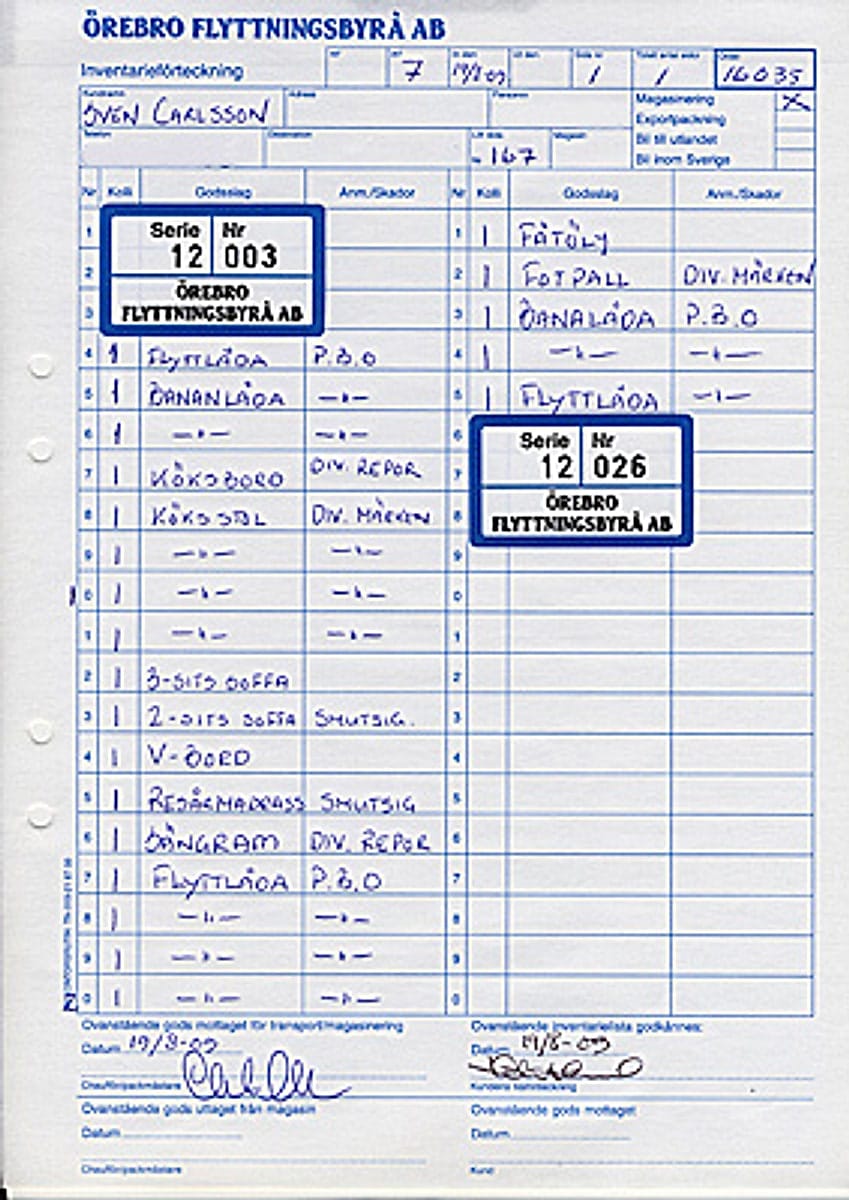 ÖREBRO FLYTTNINGSBYRÅ AB
Inventarieförteckning
7 1 1 16035
SVEN CARLSSON
Magasinering X
Exportpackning
Bil till utlandet
Bil inom Sverige
167
Nr Kolli Godsslag Anm./Skador Nr Kolli Godsslag Anm./Skador
Serie Nr
12 003
ÖREBRO
FLYTTNINGSBYRÅ AB
4 1 FLYTTLÅDA P.B.O
5 1 BANANLÅDA —"—
6 1 —"— —"—
7 1 KÖKSBORD DIV. REPOR
8 1 KÖKSSTOL DIV. MÄRKEN
9 1 —"— —"—
0 1 —"— —"—
1 1 —"— —"—
2 1 3-SITS SOFFA
3 1 2-SITS SOFFA SMUTSIG.
4 1 V-BORD
5 1 RESÅRMADRASS SMUTSIG
6 1 SÄNGRAM DIV. REPOR
7 1 FLYTTLÅDA P.B.O
8 1 —"— —"—
9 1 —"— —"—
20 1 —"— —"—
1 1 FÅTÖLJ
2 1 FOTPALL DIV. MÄRKEN
3 1 BANALÅDA P.B.O
4 1 —"— —"—
5 1 FLYTTLÅDA —"—
6
7
8
Serie Nr
12 026
ÖREBRO
FLYTTNINGSBYRÅ AB
9
0
1
2
3
4
5
6
7
8
9
0
Ovanstående gods mottaget för transport/magasinering
Datum 19/8-09
Chaufför/packmästare
Ovanstående gods uttaget från magasin
Datum
Chaufför/packmästare
Ovanstående inventarielista godkännes:
Datum 19/8-09
Kundens namnteckning
Ovanstående gods mottaget
Datum
Kund